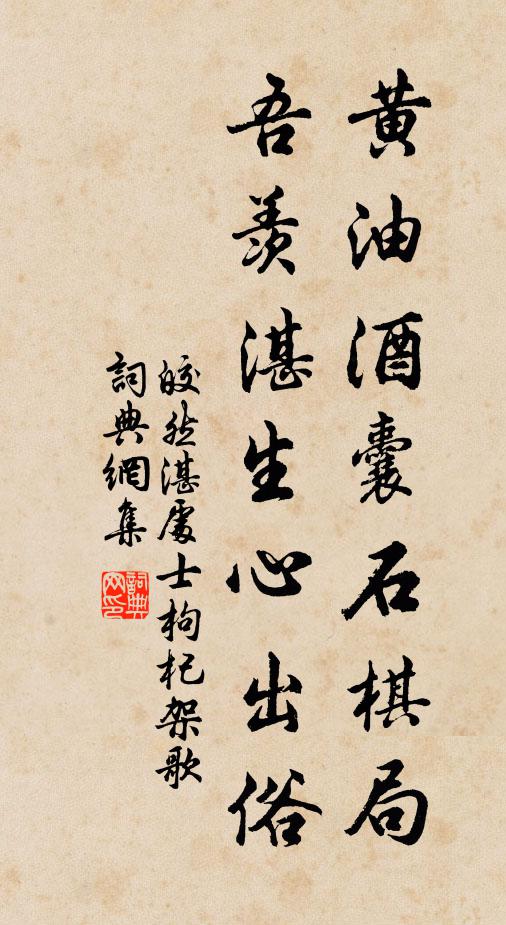 黄油酒囊石棋局
吾羨湛生心出俗
皎然湛處士枸杞架歌
詞典網集
詞典网印